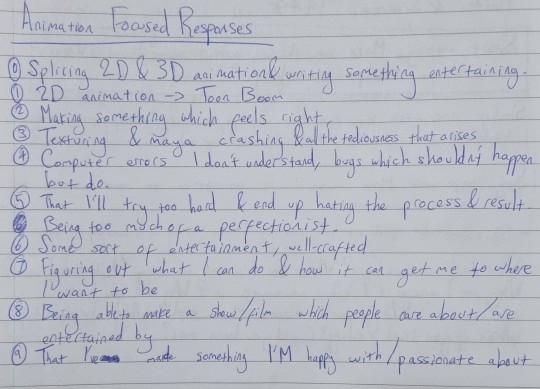 Animation Focused Responses
⓪ Splicing 2D & 3D animation & writing something entertaining.
① 2D animation -> Toon Boom
② Making something which feels right
③ Texturing & maya crashing & all the tediousness that arises
④ Computer errors I don't understand, bugs which shouldn't happen
but do.
⑤ That I'll try too hard & end up hating the process & result.
Being too much of a perfectionist.
⑥ Some sort of entertainment, well-crafted
⑦ Figuring out what I can do & how it can get me to where
I want to be
⑧ Being able to make a show/film which people care about/are
entertained by
⑨ That I've made something I'M happy with/passionate about